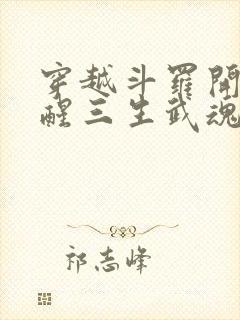 穿越斗羅開
醒三生武魂
祁志峰